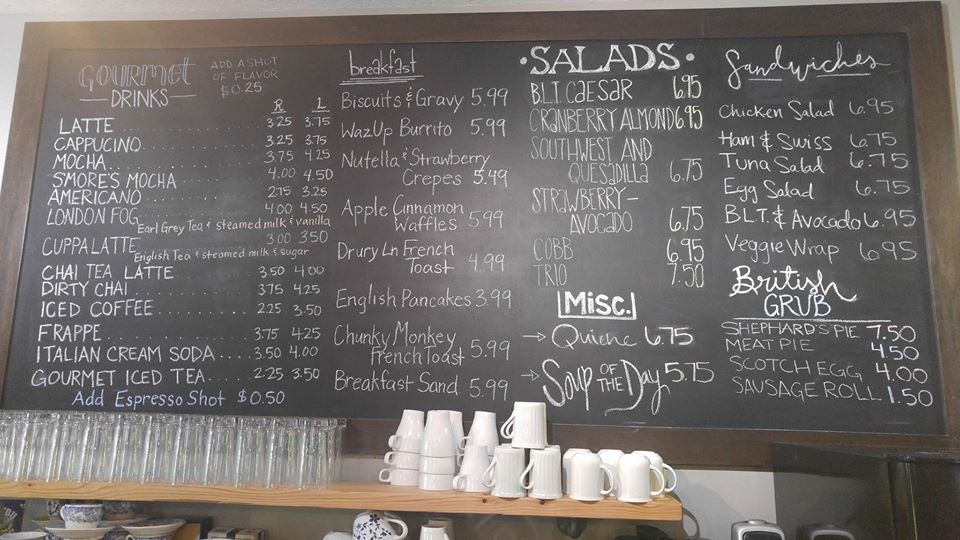 GOURMET
DRINKS
ADD A SHOT
OF FLAVOR
$0.25
R L
LATTE 3.25 3.75
CAPPUCINO 3.25 3.75
MOCHA 3.75 4.25
SMORE'S MOCHA 4.00 4.50
AMERICANO 2.75 3.25
LONDON FOG 4.00 4.50
Earl Grey Tea & steamed milk & vanilla
CUPPA LATTE 3.00 3.50
English Tea & steamed milk & sugar
CHAI TEA LATTE 3.50 4.00
DIRTY CHAI 3.75 4.25
ICED COFFEE 2.25 3.50
FRAPPE 3.75 4.25
ITALIAN CREAM SODA 3.50 4.00
GOURMET ICED TEA 2.25 3.50
Add Espresso Shot $0.50
breakfast
Biscuits & Gravy 5.99
WazUp Burrito 5.99
Nutella & Strawberry
Crepes 5.49
Apple Cinnamon
Waffles 5.99
Drury Ln French
Toast 4.99
English Pancakes 3.99
Chunky Monkey
French Toast 5.99
Breakfast Sand 5.99
• SALADS •
B.L.T. CAESAR 6.95
CRANBERRY ALMOND 6.95
SOUTHWEST AND
QUESADILLA 6.75
STRAWBERRY –
AVOCADO 6.75
COBB 6.95
TRIO 7.50
Misc.
→ Quiche 6.75
→ Soup OF THE Day 5.75
Sandwiches
Chicken Salad 6.95
Ham & Swiss 6.75
Tuna Salad 6.75
Egg Salad 6.75
B.L.T. & Avocado 6.95
Veggie Wrap 6.95
British
GRUB
SHEPHARD'S PIE 7.50
MEAT PIE 4.50
SCOTCH EGG 4.00
SAUSAGE ROLL 1.50